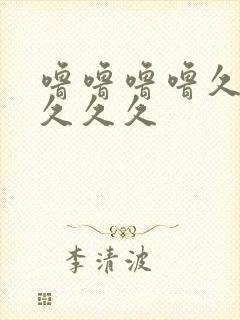 噜噜噜噜久
久久久
李清波